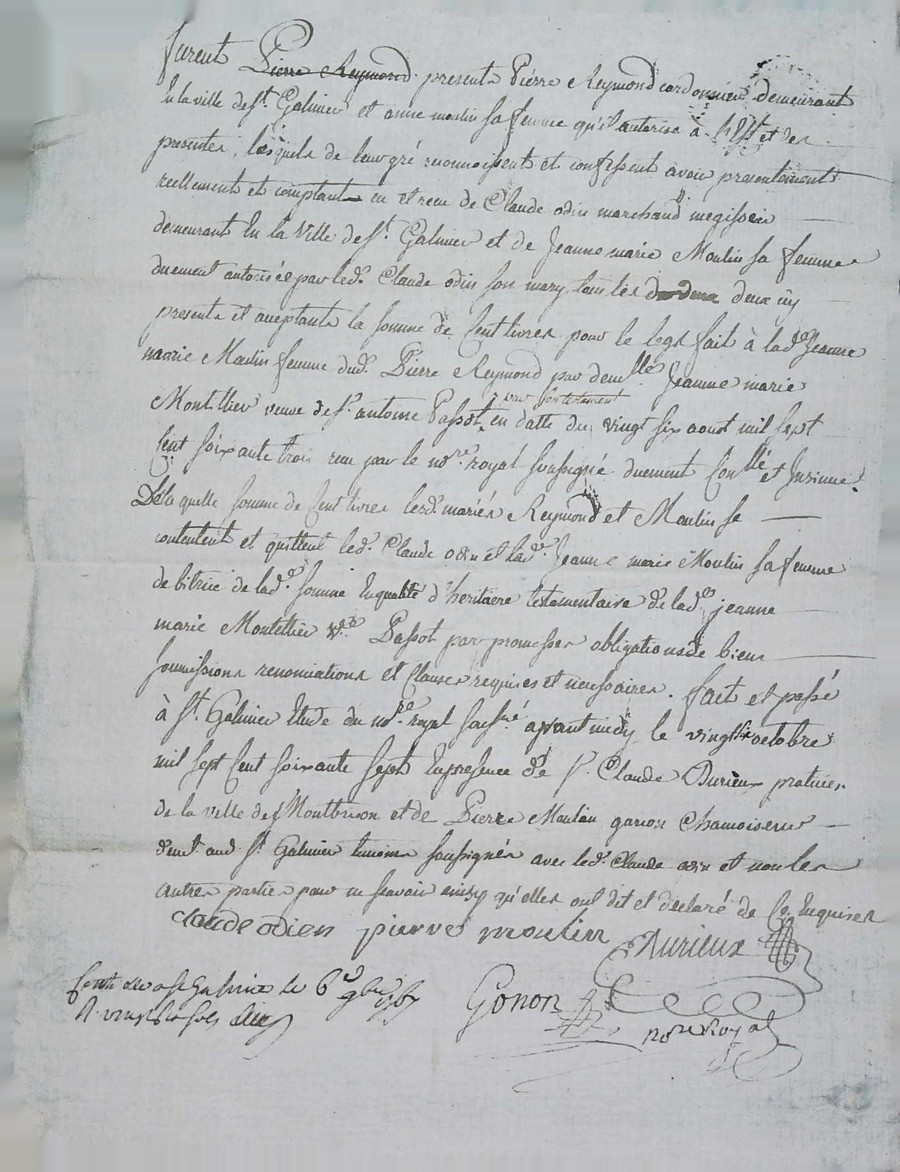 furent Pierre Reymond presents Pierre Reymond cordonnier demeurant
En la ville de St. Galmier et anne moulin sa femme qu'il autorise à et des
presentes, lesquels de leur gré reconnoissent et confessent avoir presentement
reellement et comptant eu et receu de Claude odin marchand megissier
demeurant En la Ville de St. Galmier et de Jeanne marie Moulin sa femme
duement autorisée par led. Claude odin son mary tous les deux deux icy
presents et acceptants la somme de Cent livres pour le legs fait à lad. Jeanne
marie Moulin femme dud. Pierre Reymond par demlle Jeanne marie
par son testament
Montellier veuve de Sr. antoine Passot, en datte du vingt six aoust mil sept
Cent soixante trois receu par le nore. royal soussigné duement Conllé et Insinué.
De la quelle somme de Cent livres lesd. mariés Reymond et Moulin se
contentent et quittent led. Claude odin et lad. Jeanne marie Moulin sa femme
debitrice de lad. somme En qualité d'heritiere testamentaire de lad. jeanne
marie Montellier vve Passot par promesses obligations de biens
soumissions renonciations et Clauses requises et necessaires. fait et passé
à St. Galmier Etude du nore. royal sousné avant midy le vingt six octobre
mil sept Cent soixante sept En presence de Sr. Claude Durieux praticien
de la ville de Montbrison et de Pierre Moulin garson Chamoiseur
demt. aud. St. Galmier temoins soussignés avec led. Claude odin et non les
autres parties pour ne scavoir ainsy qu'elles ont dit et declaré de Ce Enquises
claude odien pierre moulin Durieux
Contr. a St Galmier le 6e 9bre 1767
R. sols
Gonon
nore Royal